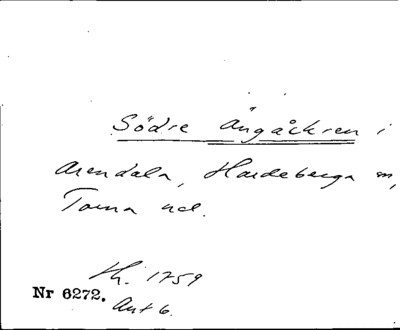 Södre Ängåckren i
Arendala, Hardeberga sn,
Torna hd.
Lh. 1759
Nr 6272.
Akt 6.